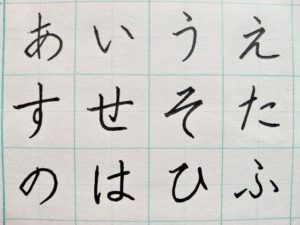 あいうえ
すせそた
のはひふ